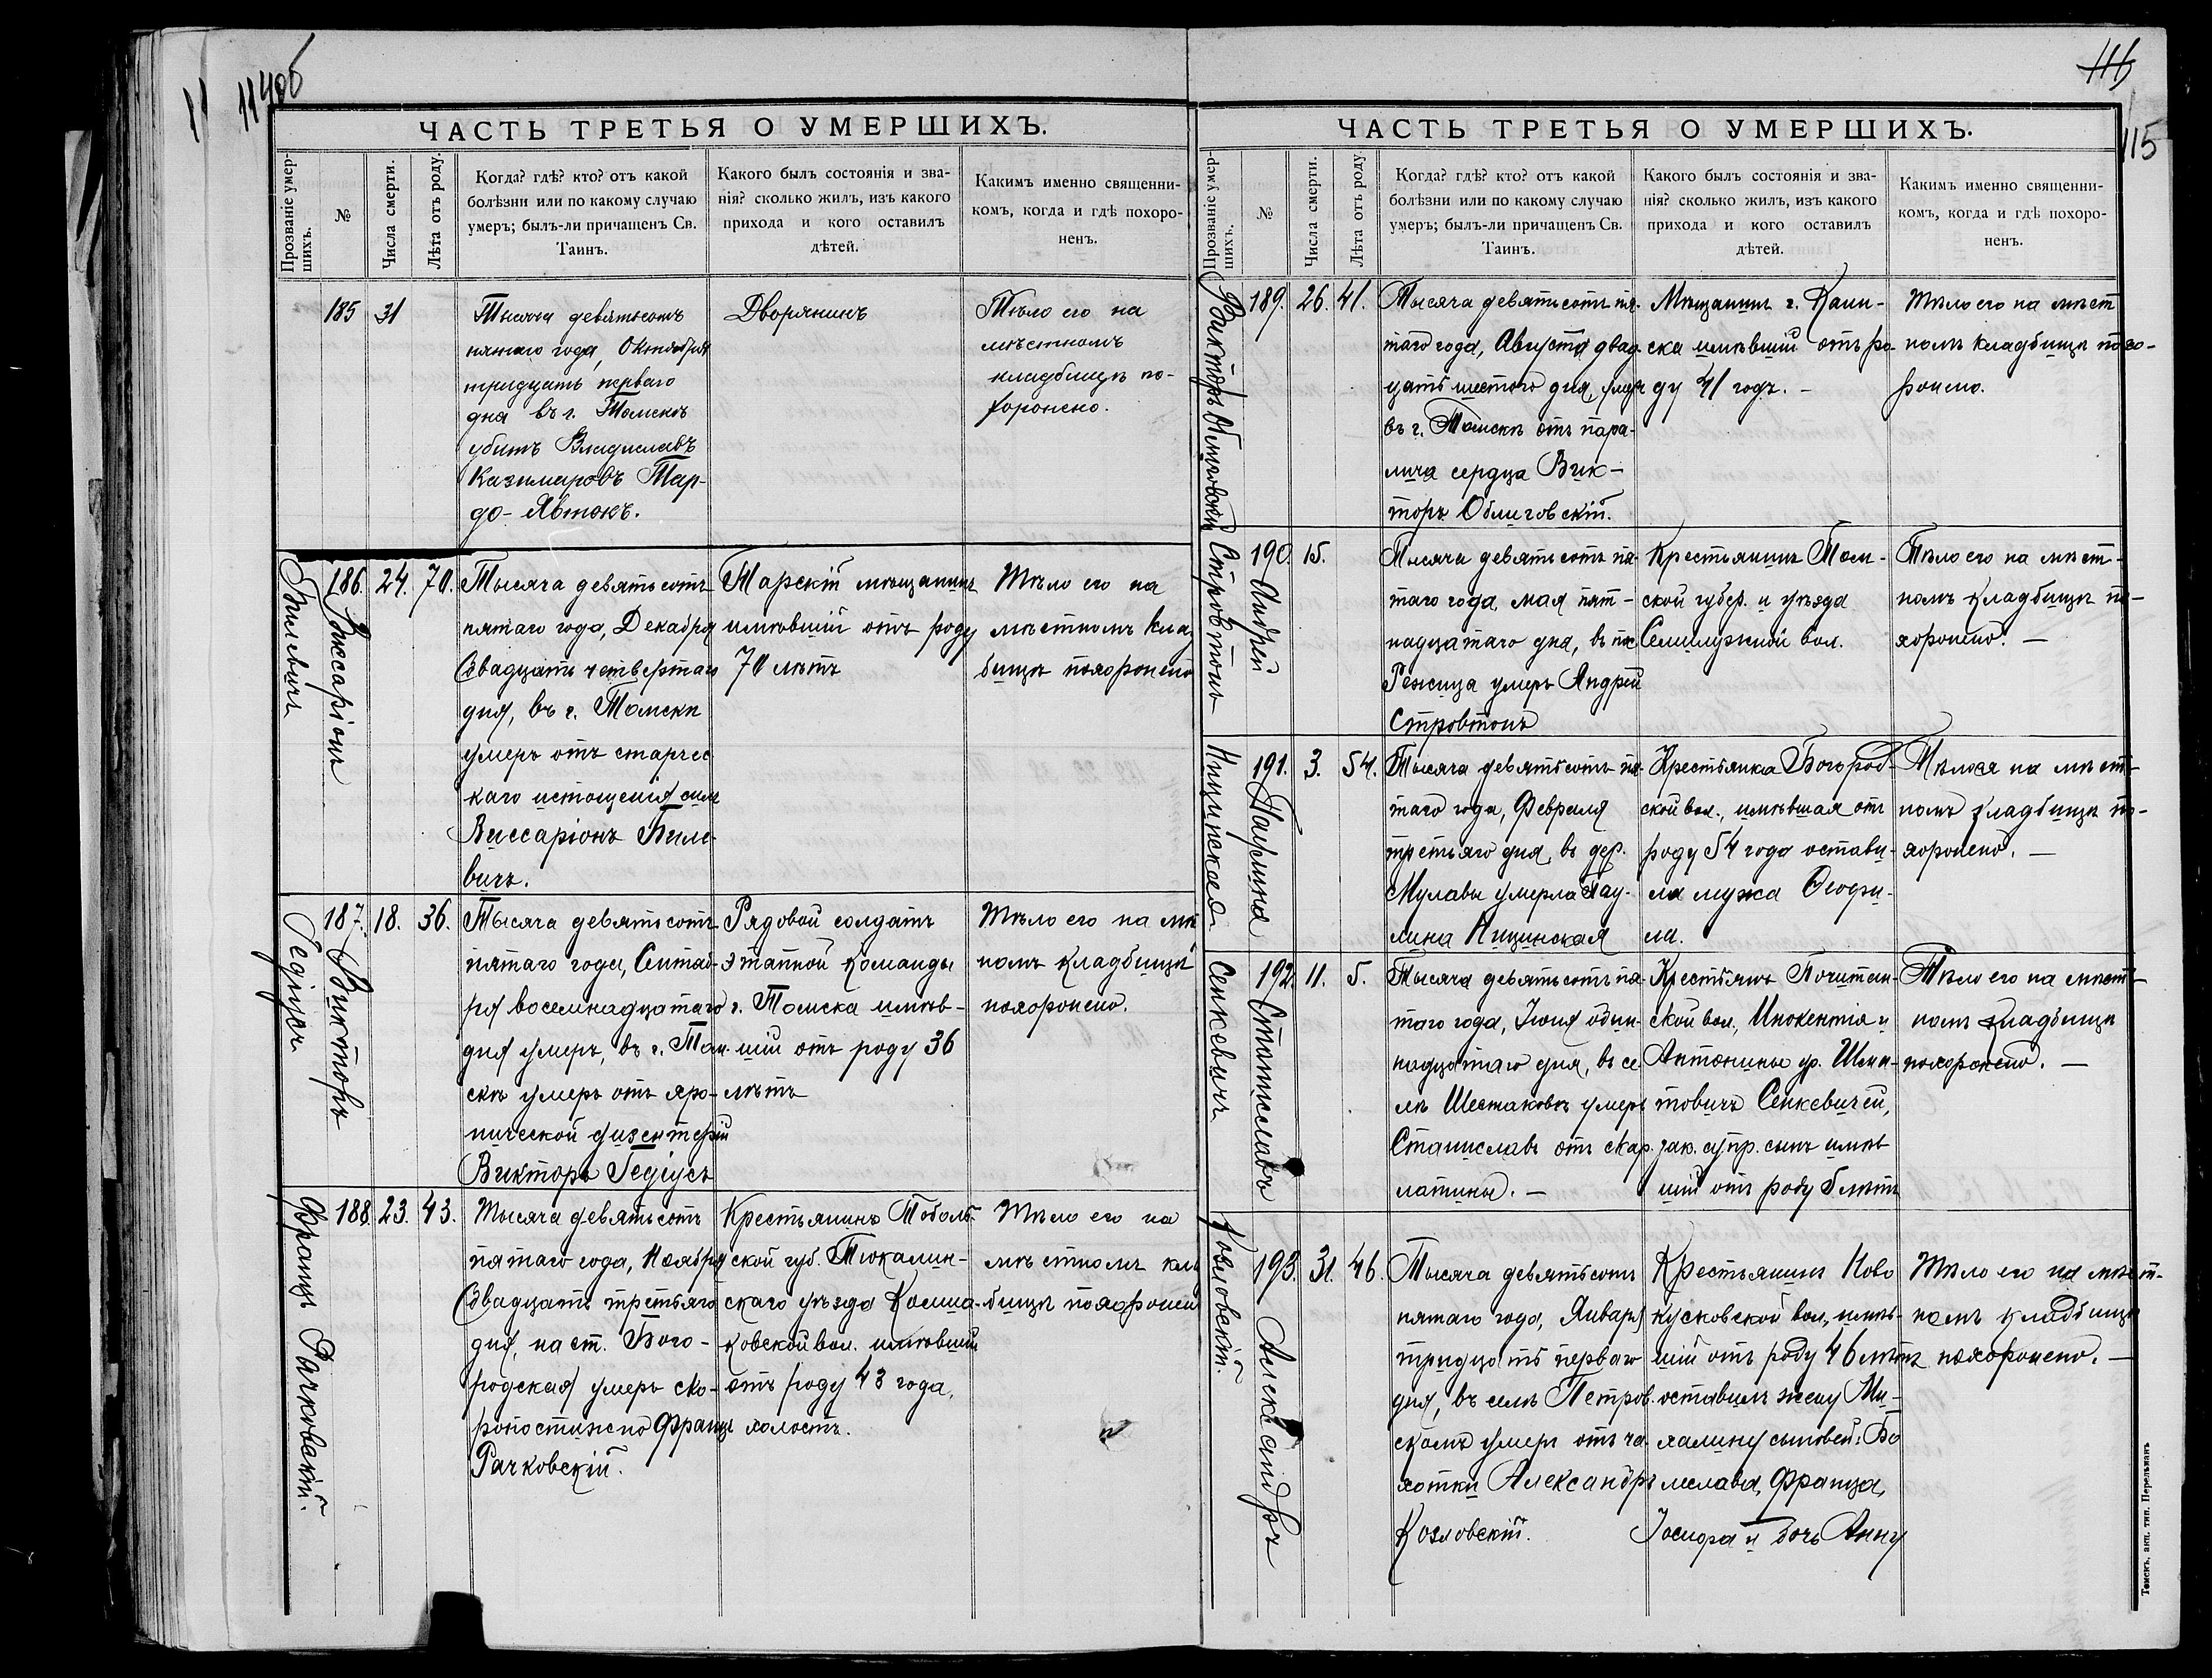 114об
ЧАСТЬ ТРЕТЬЯ О УМЕРШИХЪ.
Прозваніе умер-
шихъ.
№
Числа смерти.
Лѣта отъ роду.
Когда? гдѣ? кто? отъ какой
болѣзни или по какому случаю
умеръ; былъ-ли причащенъ Св.
Таинъ.
Какого былъ состоянія и зва-
нія? сколько жилъ, изъ какого
прихода и кого оставилъ
дѣтей.
Какимъ именно священни-
комъ, когда и гдѣ похоро-
ненъ.
185
31
Тысяча девятьсотъ
пятаго года, Октября
тридцать перваго
дня въ г. Томскѣ
убитъ Владиславъ
Казимировъ Тар-
до-Явтокъ.
Дворянинъ
Тѣло его на
мѣстномъ
кладбищѣ по-
хоронено.
Билевичъ
186.
Виссаріонъ
24.
70.
Тысяча девятьсотъ
пятаго года, Декабря
двадцать четвертаго
дня, въ г. Томскѣ
умеръ отъ старчес
каго истощенія силъ
Виссаріонъ Биле-
вичъ.
Тарскій мѣщанинъ
имѣвшій отъ роду
70 лѣтъ
Тѣло его на
мѣстномъ клад
бищѣ похоронено
Гедіусъ
187.
Викторъ
18.
36.
Тысяча девятьсотъ
пятаго года, Сентяб-
ря восемнадцатаго
дня умеръ, въ г. Том-
скѣ умеръ отъ хро-
нической дизентеріи
Викторъ Гедіусъ
Рядовой солдатъ
этапной команды
г. Томска имѣв-
шій отъ роду 36
лѣтъ
Тѣло его на мѣ
номъ кладбищѣ
похоронено.
Францъ Рачковскій.
188.
23.
43.
Тысяча девятьсотъ
пятаго года, Ноября
двадцать третьяго
дня, на ст. Бого-
родская умеръ ско-
ропостижно Францъ
Рачковскій.
Крестьянинъ Тоболь-
ской губ. Тюкалин-
скаго уѣзда
ковской вол. имѣвшій
отъ роду 43 года,
холостъ.
Тѣло его на
мѣстномъ кла
бищѣ похоронен
116
115
ЧАСТЬ ТРЕТЬЯ О УМЕРШИХЪ.
Прозваніе умер-
шихъ.
№
Числа смерти.
Лѣта отъ роду.
Когда? гдѣ? кто? отъ какой
болѣзни или по какому случаю
умеръ; былъ-ли причащенъ Св.
Таинъ.
Какого былъ состоянія и зва-
нія? сколько жилъ, изъ какого
прихода и кого оставилъ
дѣтей.
Какимъ именно священни-
комъ, когда и гдѣ похоро-
ненъ.
Викторъ Облиговскій
189.
26.
41.
Тысяча девятьсотъ пя-
таго года, Августа двад-
цать шестого дня, умеръ
въ г. Томскѣ отъ пара-
лича сердца Вик-
торъ Облиговскій.
Мѣщанинъ г. Каин-
ска имѣвшій отъ ро-
ду 41 годъ. -
Тѣло его на мѣст
номъ кладбищѣ похо-
ронено.
Стровтонъ
190.
Андрей
15.
Тысяча девятьсотъ пя-
таго года, мая пят-
надцатаго дня, въ пос
Режица умеръ Андрей
Стровтонъ
Крестьянинъ Том-
ской губер. и уѣзда
Семилужной вол.
Тѣло его на мѣст-
номъ кладбищѣ по-
хоронено. —
Ницинская
191.
Паулина
3.
54.
Тысяча девятьсотъ пя-
таго года, Февраля
третьяго дня, въ дер.
Мулавы умерла Пау-
лина Ницинская
Крестьянка Богород-
ской вол., имѣвшая отъ
роду 54 года остави-
ла мужа Феофи-
ла.
Тѣло ея на мѣст-
номъ кладбищѣ по-
хоронено. —
Сенкевичъ
192.
Станиславъ
11.
5.
Тысяча девятьсотъ пя-
таго года, Іюня один-
надцатаго дня, въ се
лѣ Шестаковѣ умеръ
Станиславъ отъ скар-
латины. —
Крестьянъ Почитан-
ской вол., Инокентія и
Антонины ур.
товичъ Сенкевичей,
зак. супр. сынъ имѣв
шій отъ роду 5 лѣтъ
Тѣло его на мѣст-
номъ кладбищѣ
похоронено. —
Козловскій.
193.
Александръ
31.
46.
Тысяча девятьсотъ
пятаго года, Января
тридцать перваго
дня, въ селѣ Петров-
скомъ умеръ отъ ча-
хотки Александръ
Козловскій.
Крестьянинъ Ново
кусковской вол., имѣв-
шій отъ роду 46 лѣтъ
оставилъ жену Ми-
халину сыновей: Бо
леслава, Франца,
Іосифа и дочь Анну
Тѣло его на мѣст-
номъ кладбищѣ
похоронено. —
Томскъ, акц. тип. Перельманъ